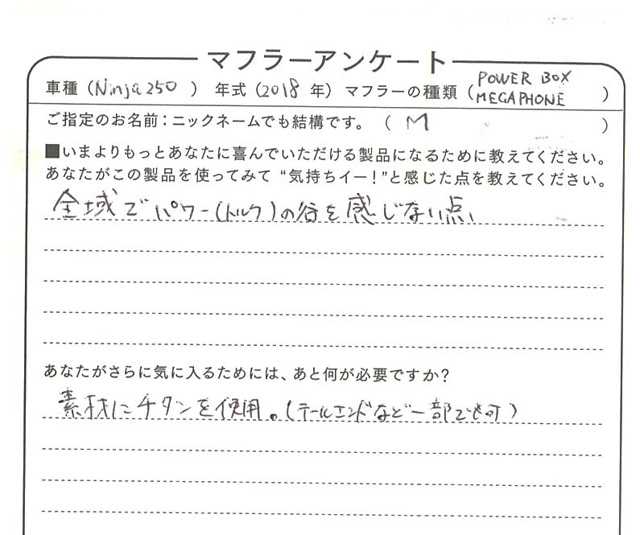 マフラーアンケート
車種（Ninja250）　年式（2018年）マフラーの種類（POWER BOX MEGAPHONE）
ご指定のお名前：ニックネームでも結構です。（M）
■いまよりもっとあなたに喜んでいただける製品になるために教えてください。
あなたがこの製品を使ってみて“気持ちイー！”と感じた点を教えてください。
全域でパワー（トルク）の谷を感じない点、
あなたがさらに気に入るためには、あと何が必要ですか？
素材にチタンを使用。（テールエンドなど一部でも可）